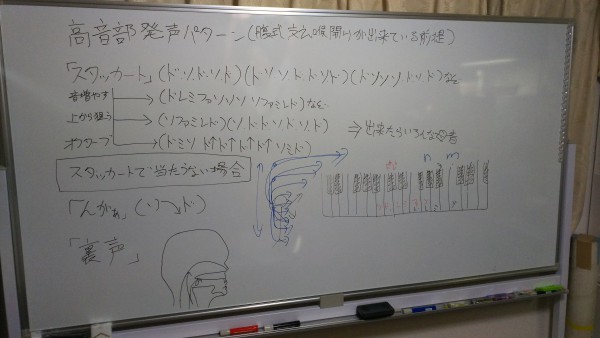 高音部発声パターン(腹式支え、喉開けが出来ている前提)
「スタッカート」(ド・ソ・ド・ソ・ド)(ド・ソソド・ドソド)(ドソソソドソド)など
音増やす →(ドレミファソソソソファミレド)など
上から狙う →(ソファミレド)(ソドソドソド)
⇒出来たらいろんな母音
オクターブ →(ドミソド↑ド↑ド↑ド↑ソミド)
スタッカートで当たらない場合
「んがぁ」(ソ→ド)
「裏声」
n m